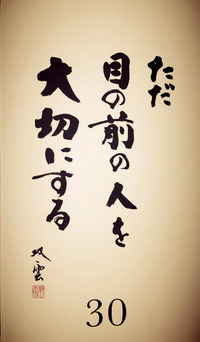 ただ
目の前の人を
大切にする
双雲
30